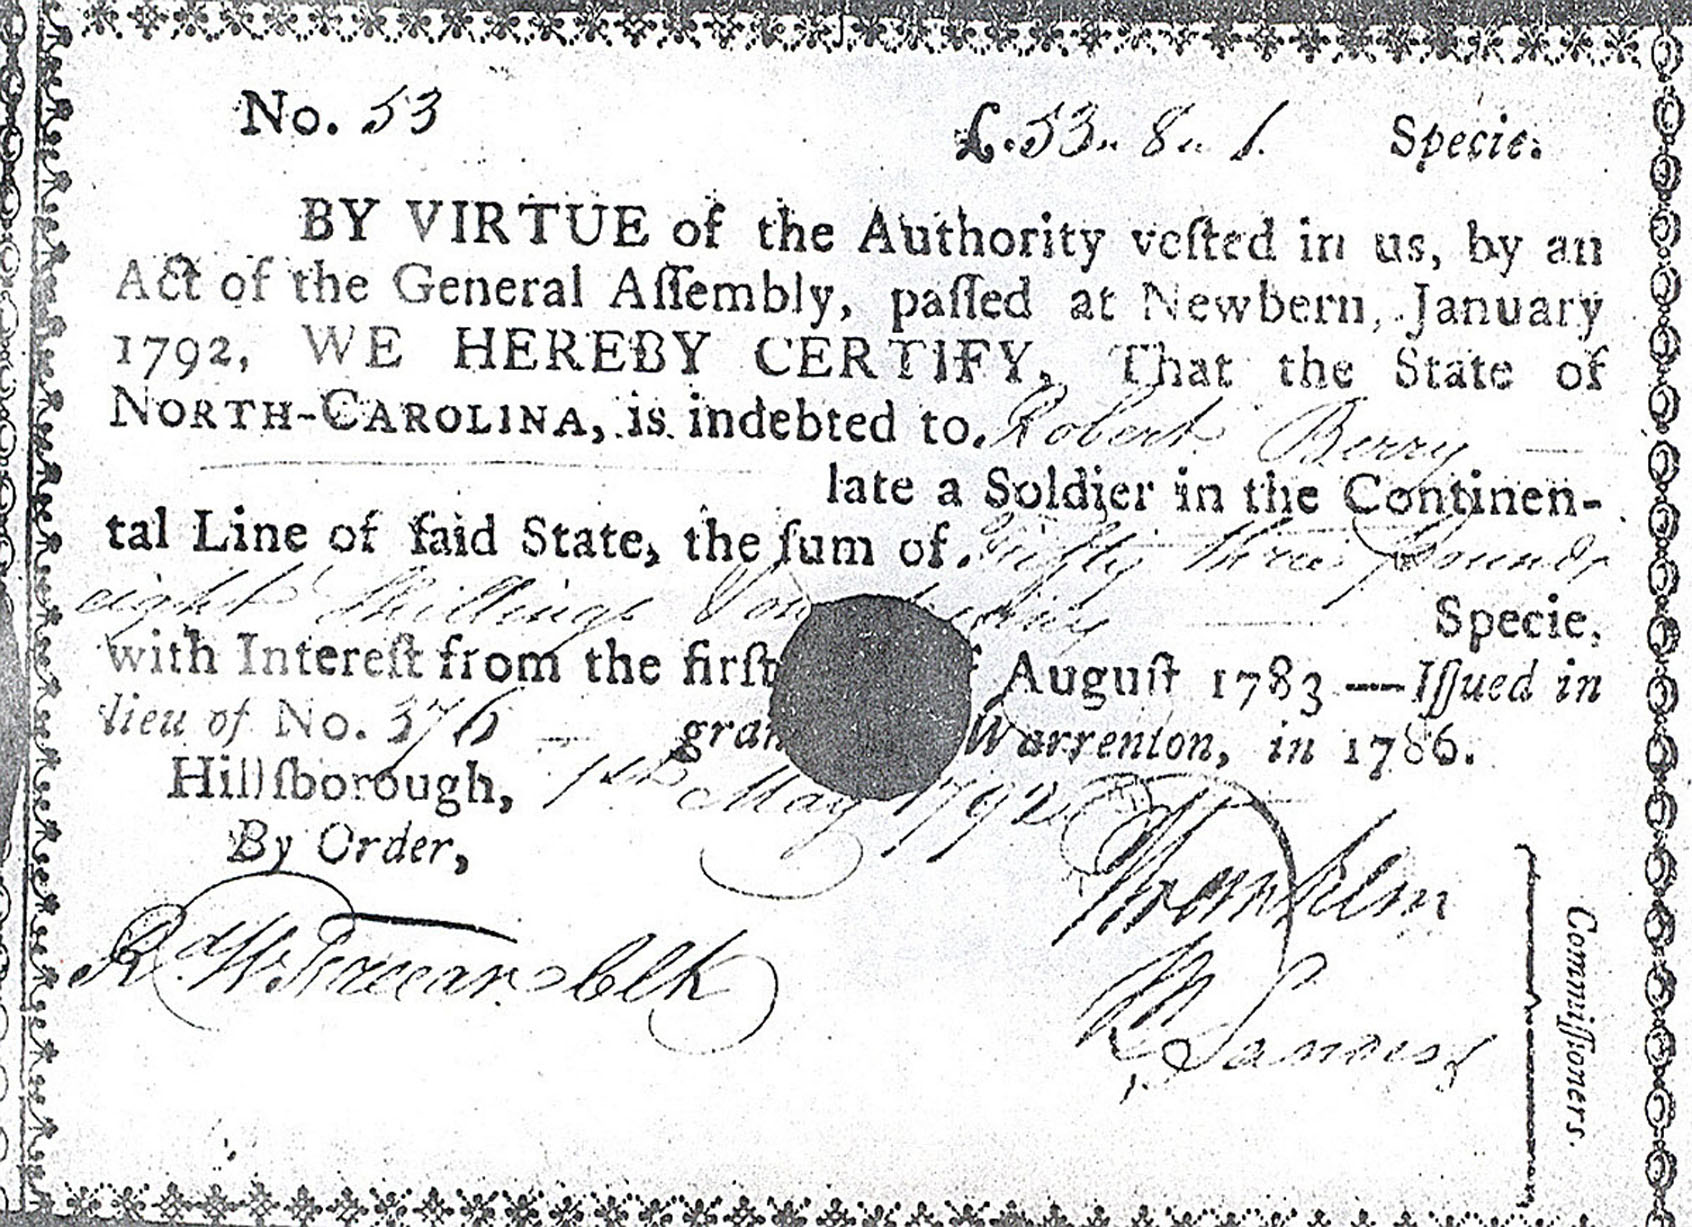 No. 53 £. 53 .. 8 .. 1. Specie.
BY VIRTUE of the Authority veſted in us, by an
Act of the General Aſſembly, paſſed at Newbern, January
1792, WE HEREBY CERTIFY, That the State of
NORTH-CAROLINA, is indebted to Robert Berry
late a Soldier in the Continen-
tal Line of ſaid State, the ſum of Fifty three pounds
eight Shillings & One
Specie,
with Intereſt from the firſt August 1783 — Iſſued in
lieu of No. 376 — Warrenton, in 1786.
Hillſborough, 1st May 1792
By Order,
Clk
Commiſſioners.